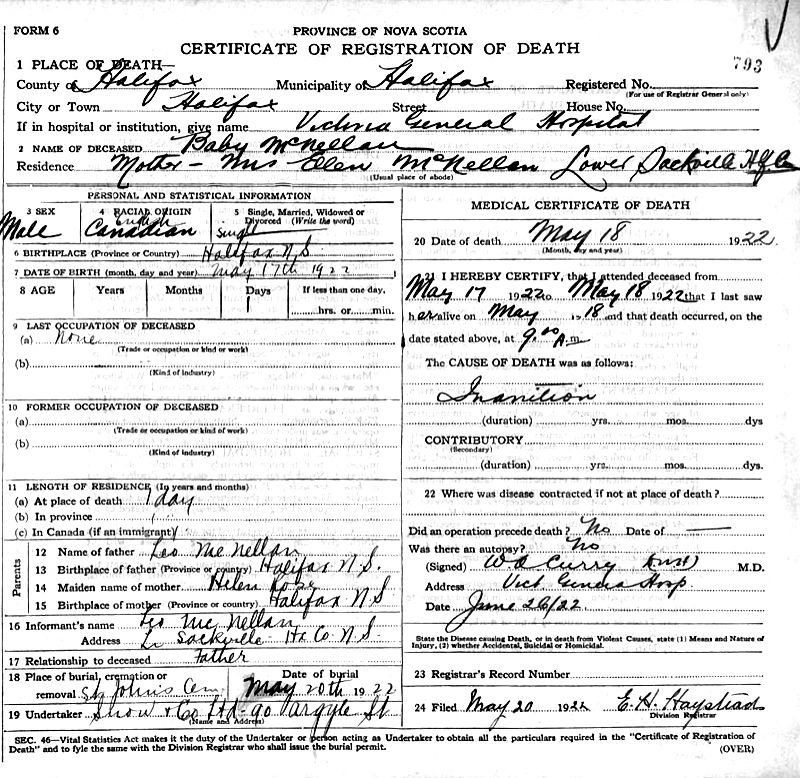 FORM 6
PROVINCE OF NOVA SCOTIA
CERTIFICATE OF REGISTRATION OF DEATH
793
1 PLACE OF DEATH—
County of Halifax Municipality of Halifax Registered No.
(For use of Registrar General only)
City or Town Halifax Street House No.
If in hospital or institution, give name Victoria General Hospital
2 NAME OF DECEASED Baby McNellan
Residence Mother - Mrs Ellen McNellan Lower Sackville Hfx Co
(Usual place of abode)
PERSONAL AND STATISTICAL INFORMATION
3 SEX 4 RACIAL ORIGIN 5 Single, Married, Widowed or Divorced (Write the word)
Male English Canadian Single
6 BIRTHPLACE (Province or Country) Halifax N S
7 DATE OF BIRTH (month, day and year) May 17th 1922
8 AGE Years Months Days If less than one day,
1 hrs. or min.
9 LAST OCCUPATION OF DECEASED
(a) None
(Trade or occupation or kind or work)
(b)
(Kind of industry)
10 FORMER OCCUPATION OF DECEASED
(a)
(Trade or occupation or kind of work)
(b)
(Kind of industry)
11 LENGTH OF RESIDENCE (In years and months)
(a) At place of death 1 day
(b) In province
(c) In Canada (if an immigrant)
Parents
12 Name of father Leo McNellan
13 Birthplace of father (Province or country) Halifax N.S.
14 Maiden name of mother Helen
15 Birthplace of mother (Province or country) Halifax N S
16 Informant's name Leo McNellan
Address L. Sackville Hx Co N.S
17 Relationship to deceased Father
18 Place of burial, cremation or removal St John's Cem Date of burial May 20th 1922
19 Undertaker Snow & Co Ltd 90 Argyle St
(Name and Address)
MEDICAL CERTIFICATE OF DEATH
20 Date of death May 18 1922
(Month, day and year)
21 I HEREBY CERTIFY, that I attended deceased from
May 17 1922 to May 18 1922 that I last saw
h er alive on May 18 and that death occurred, on the
date stated above, at 9.00 A.m
The CAUSE OF DEATH was as follows:
Inanition
(duration) yrs. mos. dys
CONTRIBUTORY
(Secondary)
(duration) yrs. mos. dys.
22 Where was disease contracted if not at place of death?
Did an operation precede death? No Date of —
Was there an autopsy? No
(Signed) W D Curry M.D.
Address Vict General Hosp
Date June 26/22
State the Disease causing Death, or in death from Violent Causes, state (1) Means and Nature of
Injury, (2) whether Accidental, Suicidal or Homicidal.
23 Registrar's Record Number
24 Filed May 20 1922 E. H. Haystead
Division Registrar
SEC. 46—Vital Statistics Act makes it the duty of the Undertaker or person acting as Undertaker to obtain all the particulars required in the "Certificate of Registration of
Death" and to fyle the same with the Division Registrar who shall issue the burial permit.
(OVER)